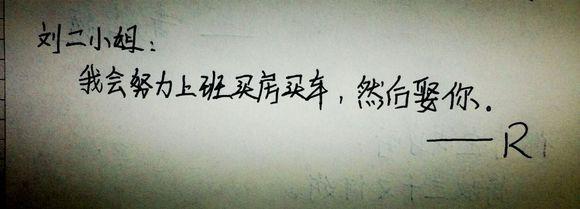 刘二小姐：
我会努力上班买房买车，然后娶你。
——R